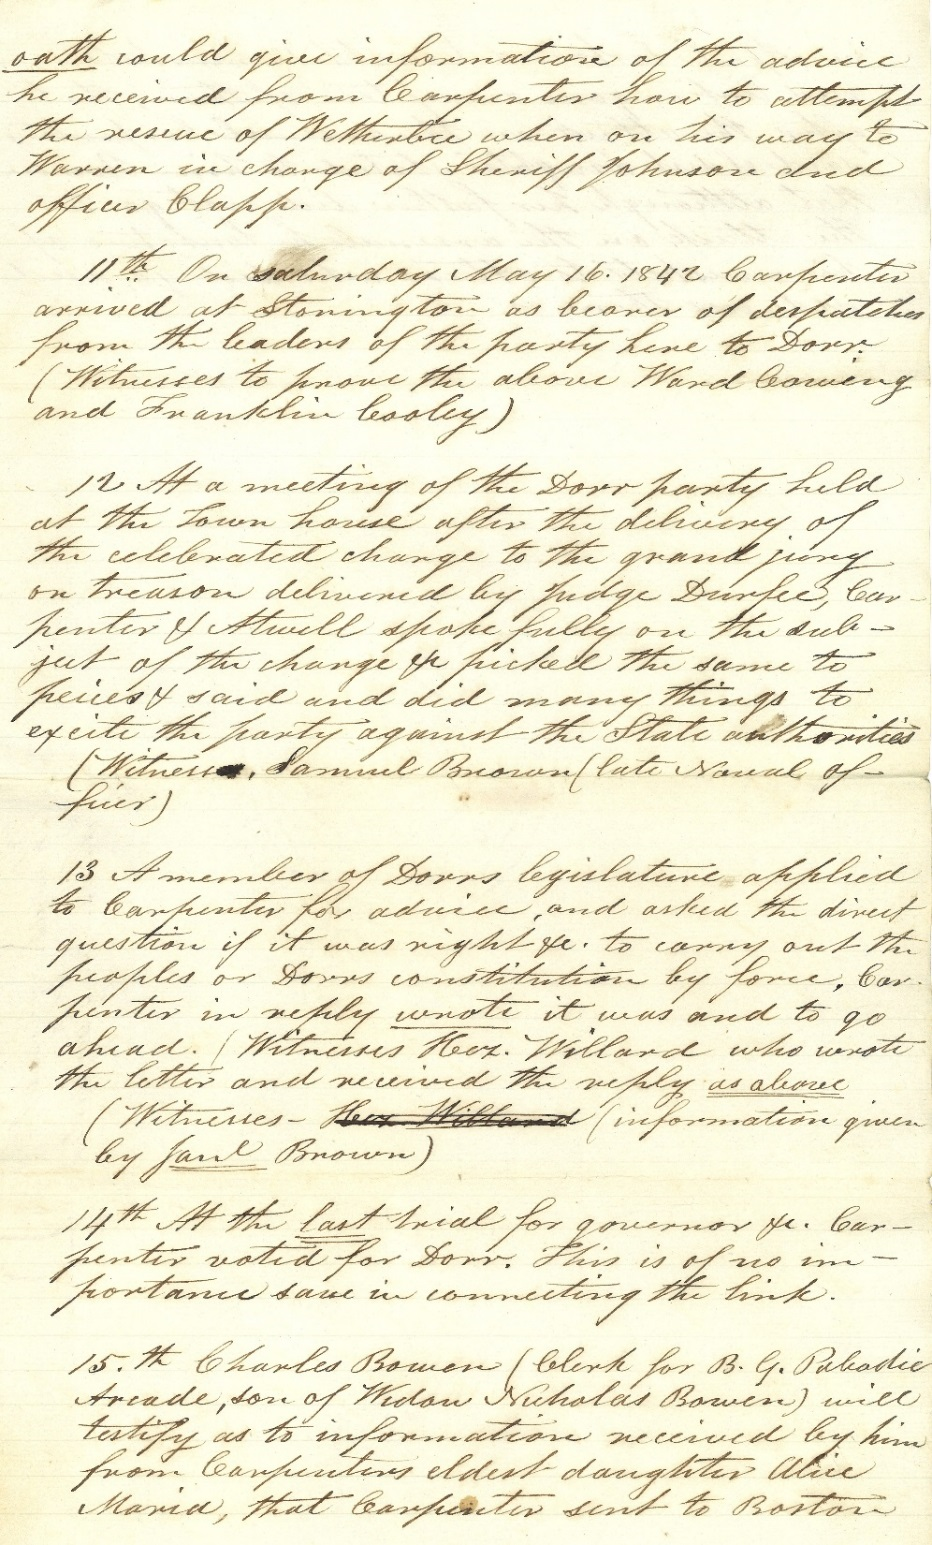 oath could give information of the advice
he received from Carpenter how to attempt
the rescue of Wetherbee when on his way to
Warren in charge of Sheriff Johnson and
officer Clapp.
11th. On saturday May 16. 1842 Carpenter
arrived at Stonington as bearer of despatches
from the leaders of the party here to Dorr.
(Witnesses to prove the above Ward Cowing
and Franklin Cooley)
12 At a meeting of the Dorr party held
at the Town house after the delivery of
the celebrated charge to the grand jury
on treason delivered by Judge Durfee, Car-
penter & Atwell spoke fully on the sub-
ject of the charge & picked the same to
peices & said and did many things to
excite the party against the State authorities
(Witness, Samuel Brown (late Naval of-
ficer)
13 A member of Dorrs legislature applied
to Carpenter for advice, and asked the direct
question if it was right &c. to carry out the
peoples or Dorrs constitution by force, Car-
penter in reply wrote it was and to go
ahead. (Witnesses Hez. Willard who wrote
the letter and received the reply as above
(Witnesses - Hez Willard (information given
by Saml Brown)
14th At the last trial for governor &c. Car-
penter voted for Dorr. This is of no im-
portance save in connecting the link.
15.th Charles Bowen (Clerk for B. G. Pabodie
Arcade, son of Widow Nicholas Bowen) will
testify as to information received by him
from Carpenters eldest daughter Alice
Maria, that Carpenter sent to Boston